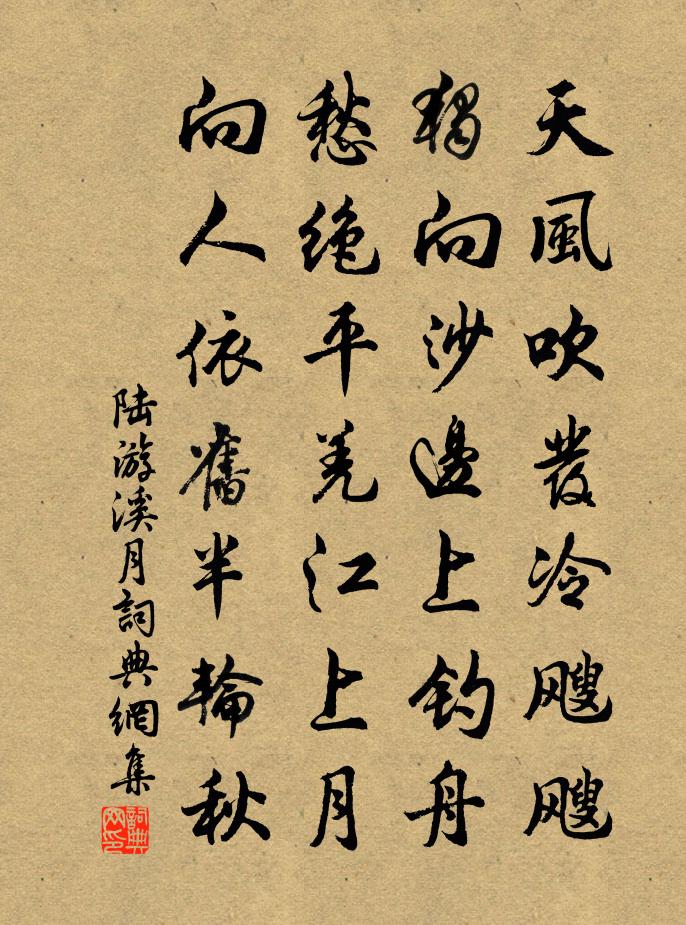 天風吹發冷颼颼
獨向沙邊上釣舟
愁絕平羌江上月
向人依舊半輪秋
陸游溪月詞典網集
詞典
网印